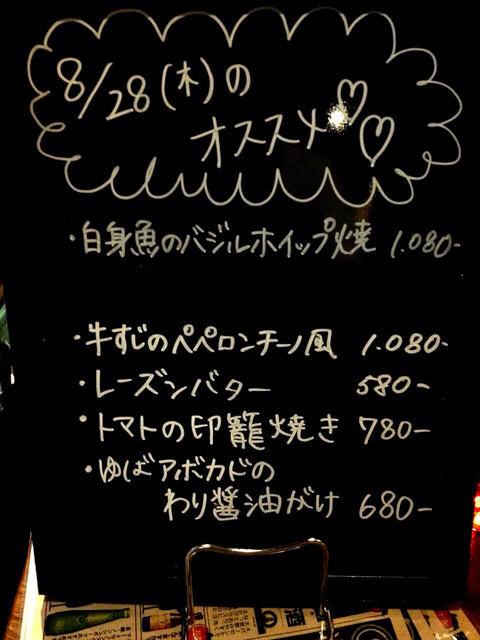 8/28(木)の
オススメ
・白身魚のバジルホイップ焼 1.080-
・牛すじのペペロンチーノ風 1.080-
・レーズンバター 580-
・トマトの印籠焼き 780-
・ゆばアボカドの
わり醤油がけ 680-